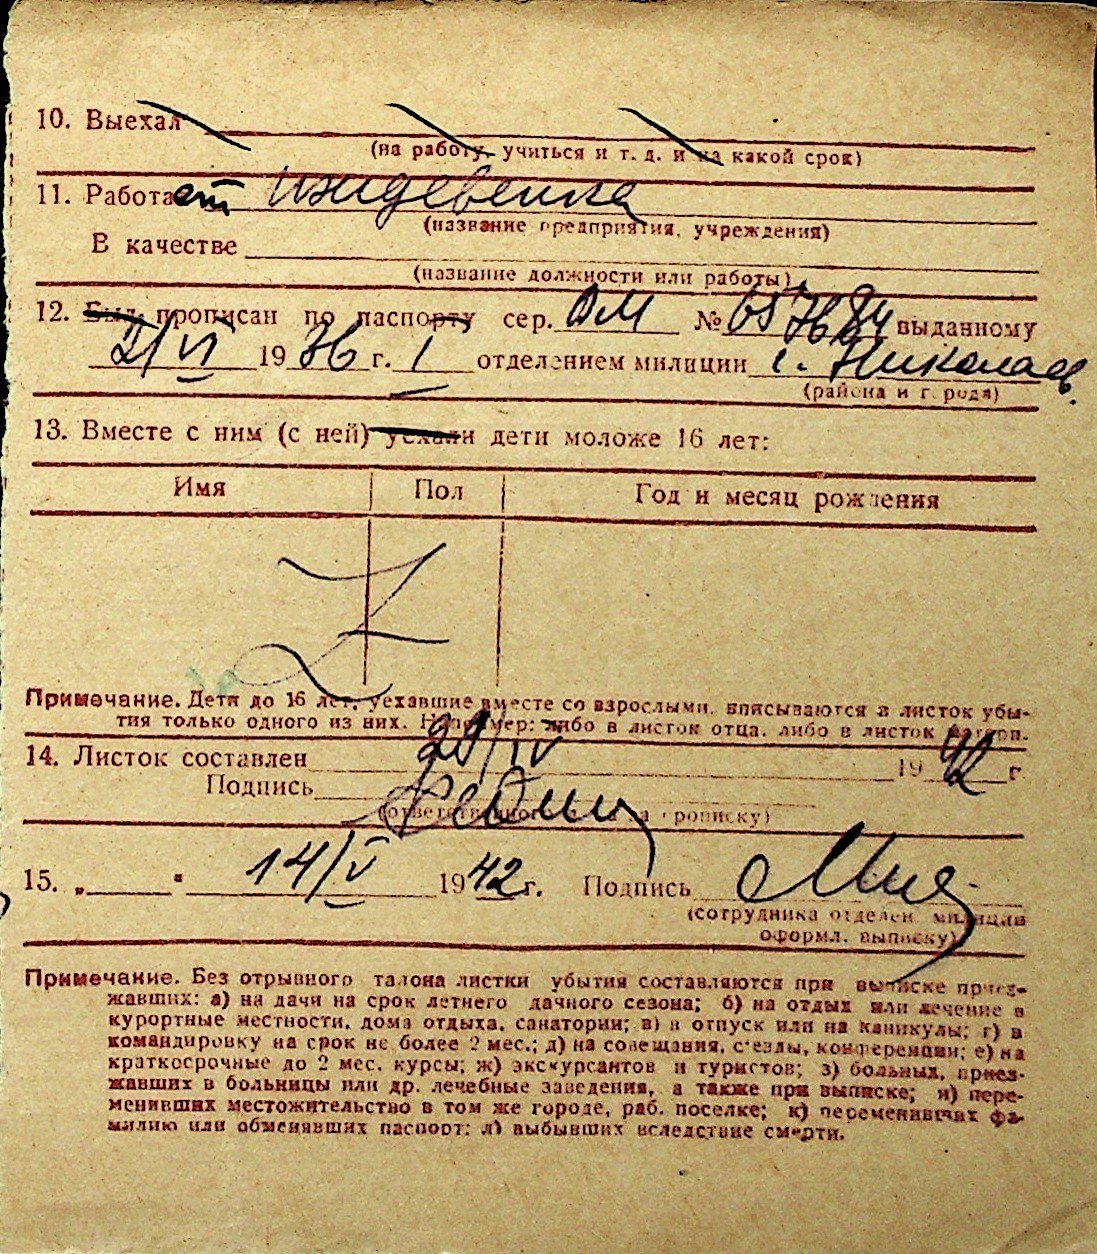 10. Выехал
(на работу, учиться и т. д. и на какой срок)
11. Работает иждевенка
(название предприятия, учреждения)
В качестве
(название должности или работы)
12. Был прописан по паспорту сер. ОМ № выданному
2/VI 1936 г. I отделением милиции г. Николаев.
(района и города)
13. Вместе с ним (с ней) уехали дети моложе 16 лет:
Имя Пол Год и месяц рождения
Z
Примечание. Дети до 16 лет, уехавшие вместе со взрослыми, вписываются в листок убы-
тия только одного из них. Например: либо в листок отца, либо в листок матери.
14. Листок составлен 29/IV 1942 г
Подпись
(ответственного за прописку)
15. „ " 14/V 1942 г. Подпись
(сотрудника отделен. милиции
оформл. выписку)
Примечание. Без отрывного талона листки убытия составляются при выписке приез-
жавших: а) на дачи на срок летнего дачного сезона; б) на отдых или лечение в
курортные местности, дома отдыха, санатории; в) в отпуск или на каникулы; г) в
командировку на срок не более 2 мес.; д) на совещания, съезды, конференции; е) на
краткосрочные до 2 мес. курсы; ж) экскурсантов и туристов; з) больных, приез-
жавших в больницы или др. лечебные заведения, а также при выписке; и) пере-
менивших местожительство в том же городе, раб. поселке; к) переменивших фа-
милию или обменявших паспорт; л) выбывших вследствие смерти.